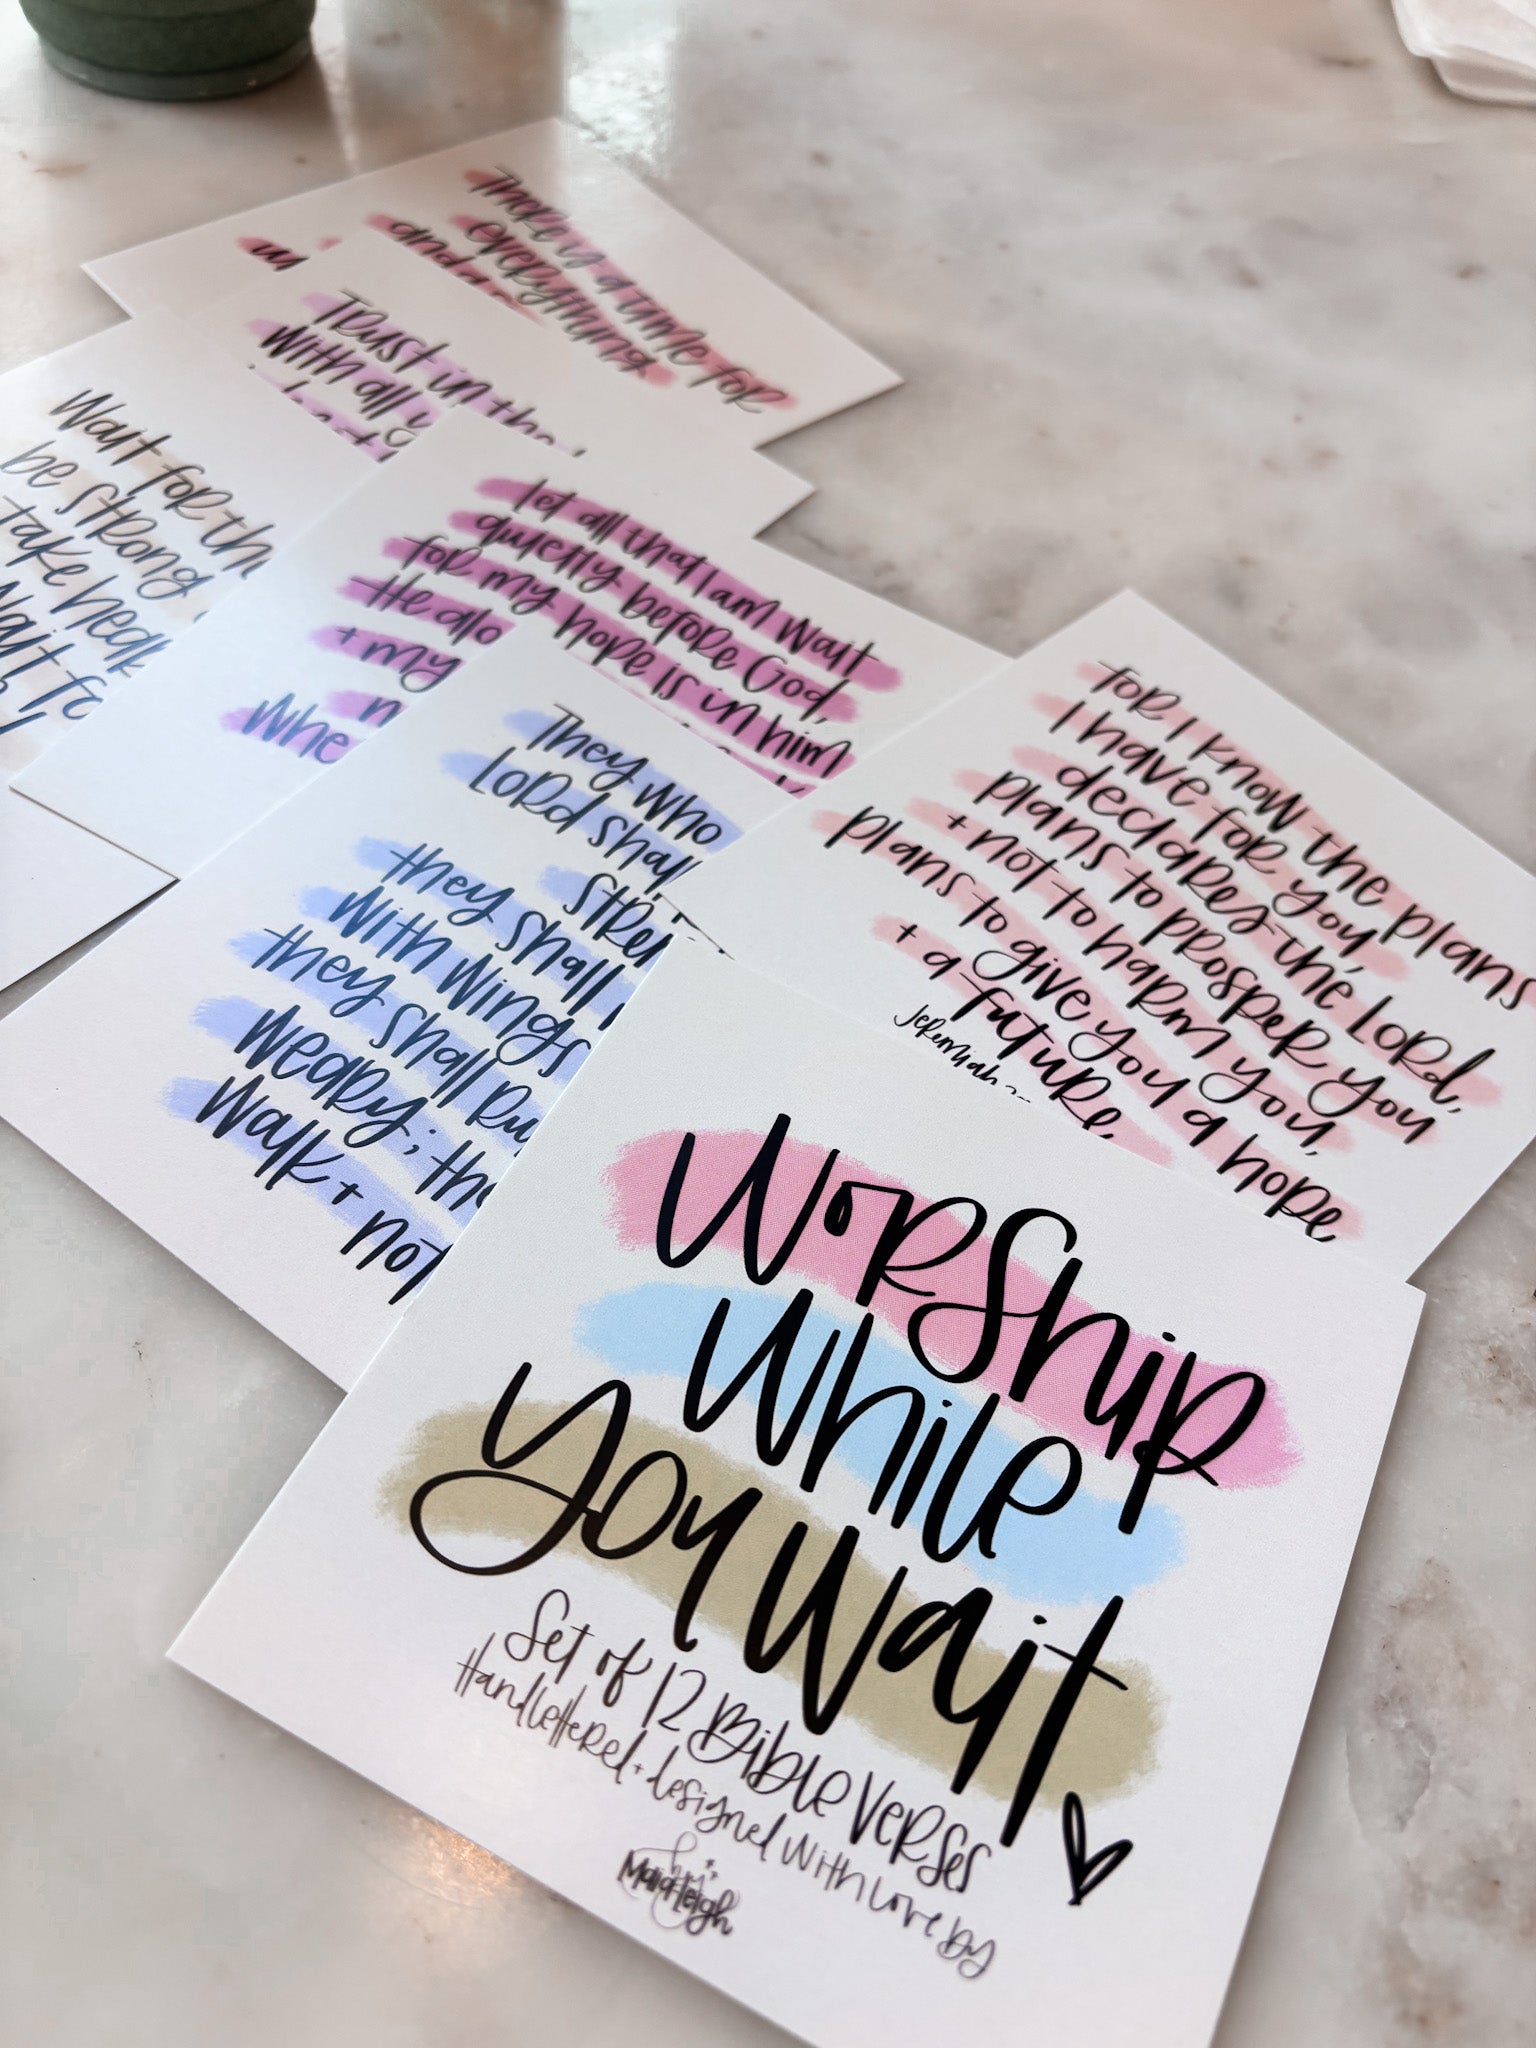 There is a time for
everything,
and a
Trust in the
with all
Wait for th
be strong
take hear
Wait fo
let all that I am wait
quietly before God,
for my hope is in him
He alo
+ my
whe
They who
Lord shall
stren
they shall
with wings
they shall ru
weary; the
walk + not
for I know the plans
I have for you
declares the Lord,
plans to prosper you
+ not to harm you,
plans to give you a hope
+ a future.
Jeremiah
Worship
While
you Wait
Set of 12 Bible Verses
Handlettered + designed with love by
hey
MariaLeigh